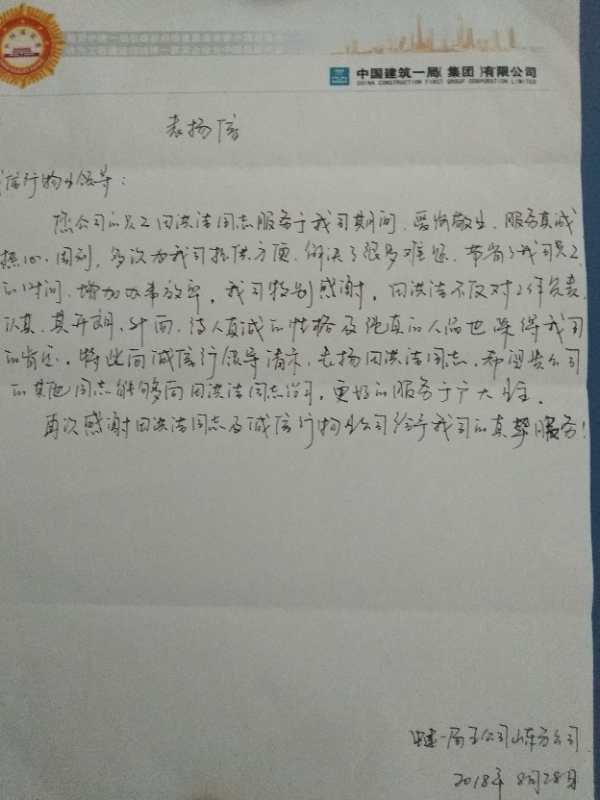 中国建筑一局(集团)有限公司
CHINA CONSTRUCTION FIRST GROUP CORPORATION LIMITED
表扬信
诚信行物业领导:
您公司的员工田洪法同志服务于我司期间,爱岗敬业,服务真诚
热心、周到,多次为我司提供方便,解决了很多难题,节省了我司员工
的时间,增加办事效率,我司特别感谢,田洪法不仅对工作负责
认真,其开朗、外向、待人真诚的性格及纯真的人品也赢得我司
的肯定,特此向诚信行领导请示,表扬田洪法同志,希望贵公司
的其他同志能够向田洪法同志学习,更好的服务于广大业主.
再次感谢田洪法同志及诚信行物业公司给予我司的真挚服务!
中建一局五公司山东分公司
2018年8月28日